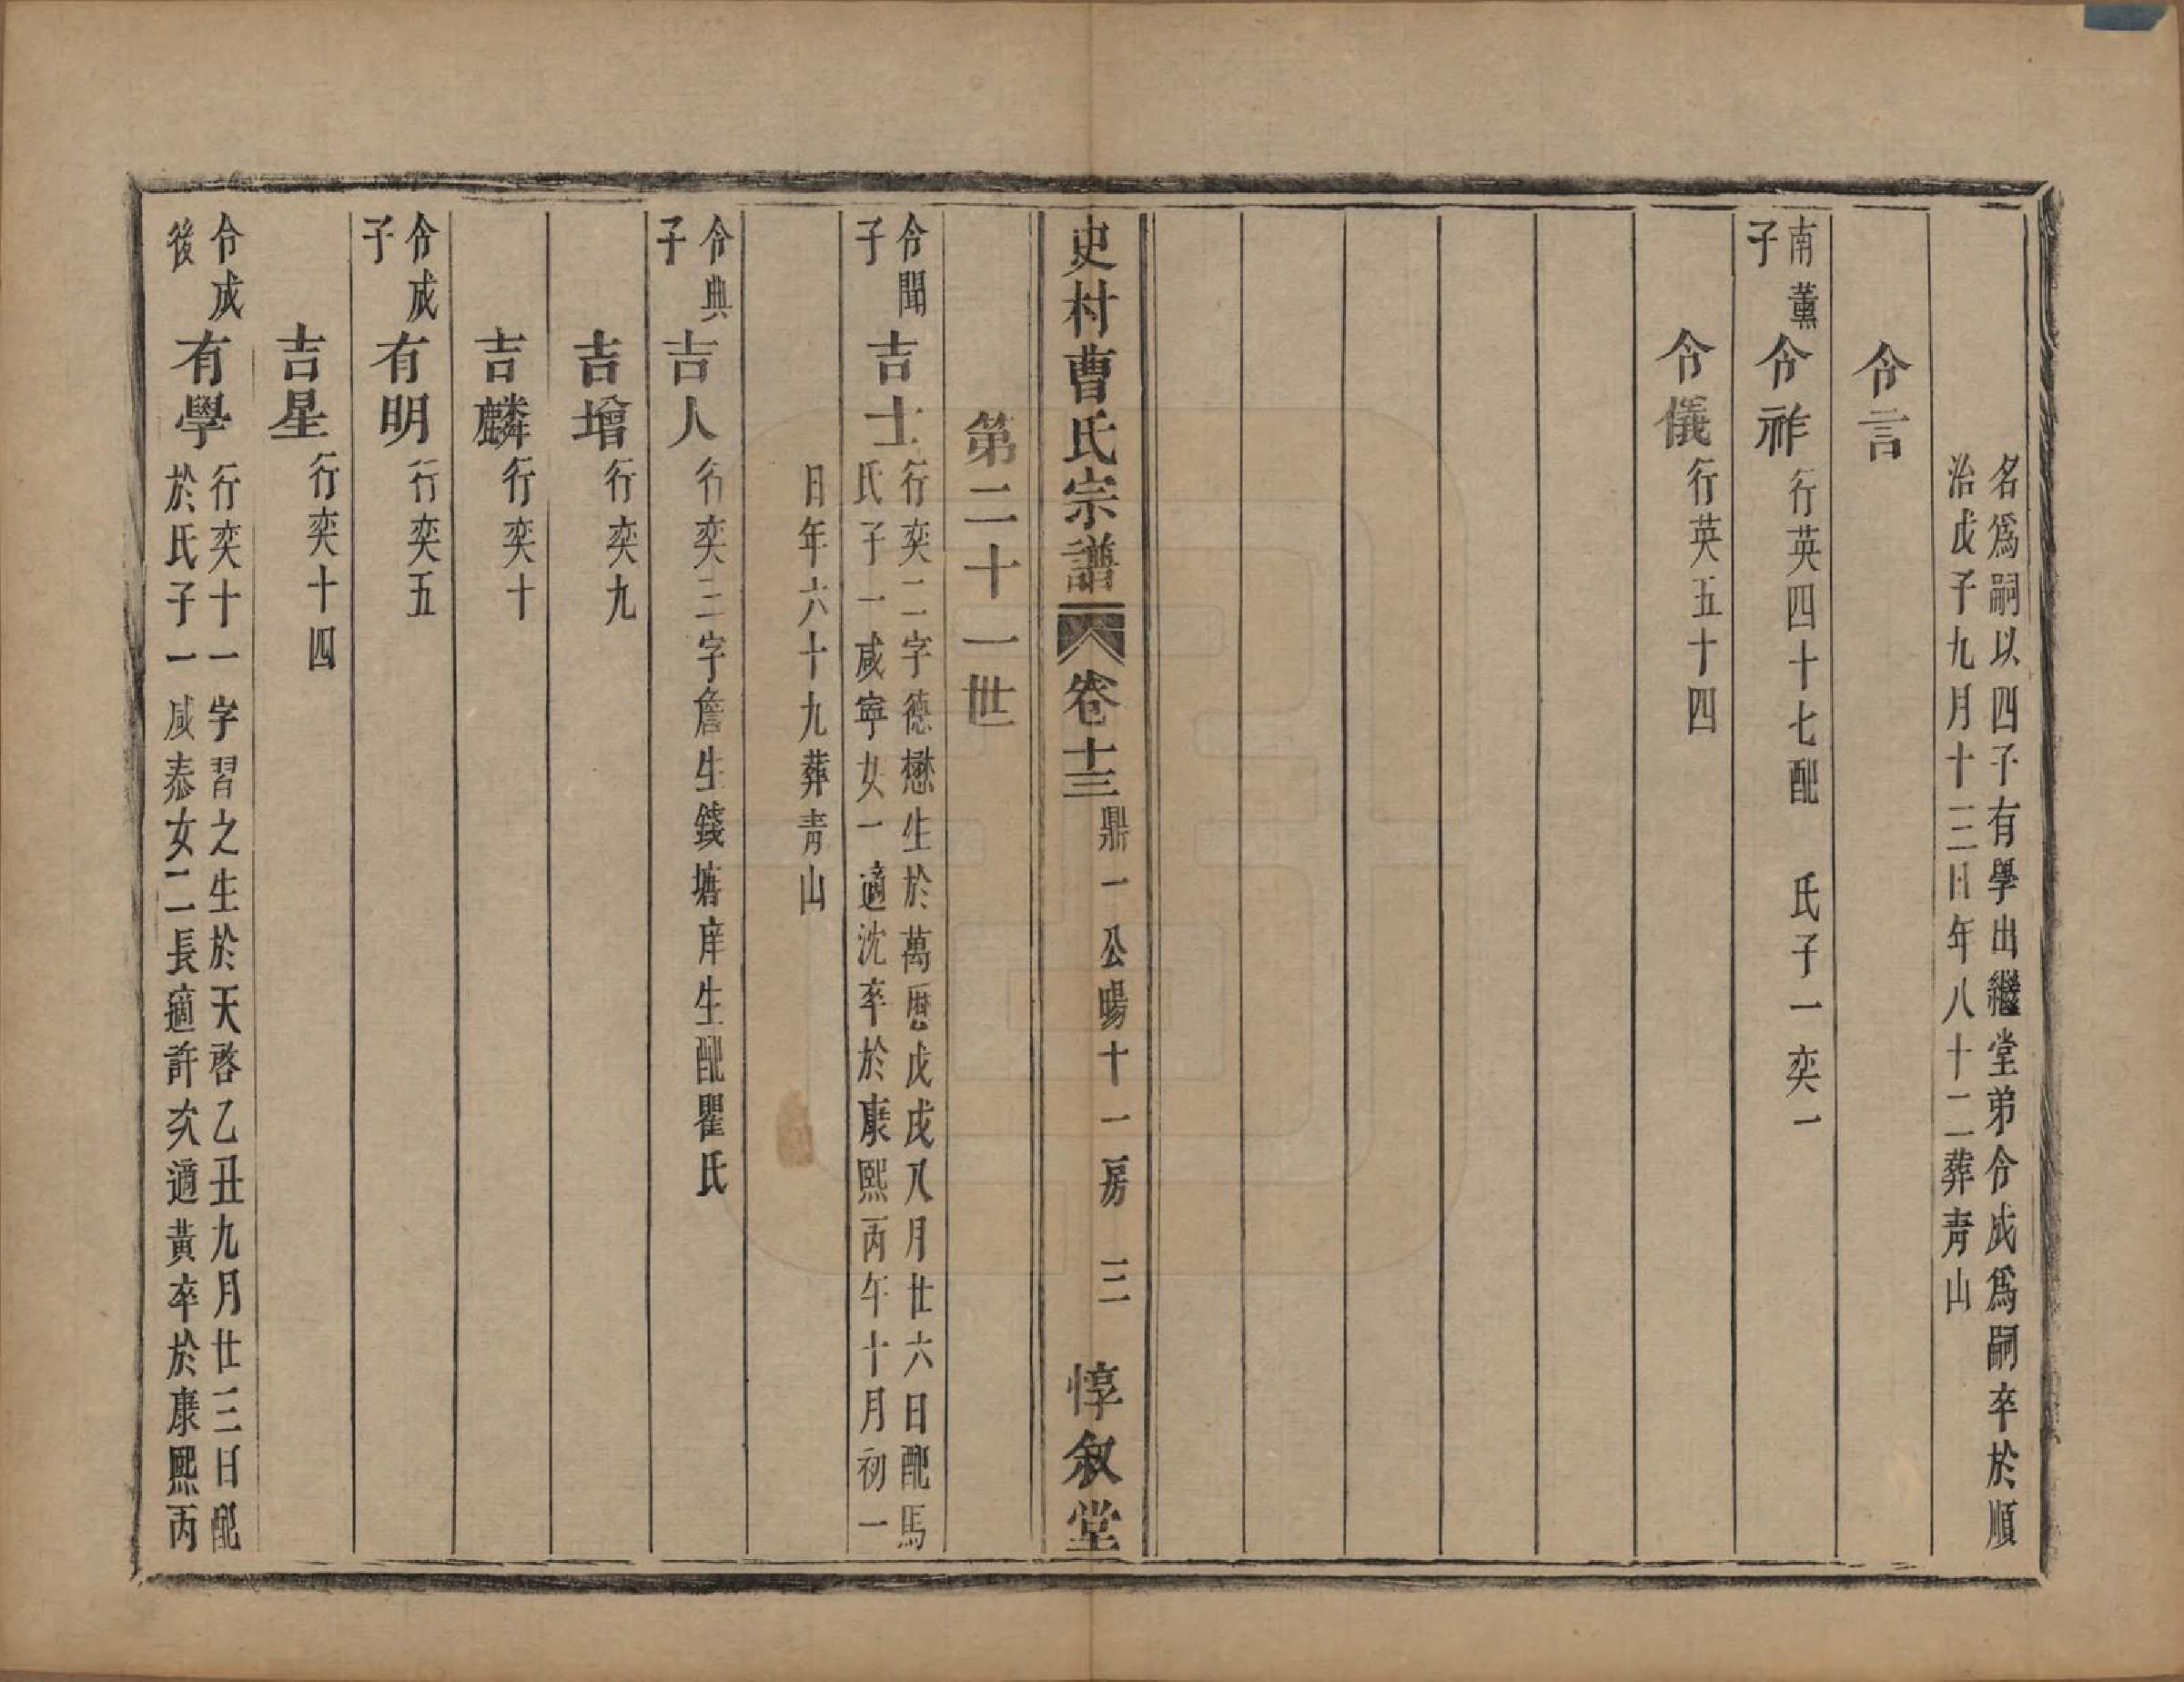 名爲嗣以四子有學出繼堂弟令成爲嗣卒於順
治戊子九月十三日年八十二葬靑山
令言
南薰
子
令祚
行英四十七配 氏子一奕一
令儀
行英五十四
史村曹氏宗譜
卷十三
鼎一公暘十一房 三
惇叙堂
第二十一世
令聞
子
吉士
行奕二字德懋生於萬厯戊戌八月廿六日配馬
氏子一咸寧女一適沈卒於康熙丙午十月初一
日年六十九葬靑山
令典
子
吉人
行奕三字詹生錢塘庠生配瞿氏
吉增
行奕九
吉麟
行奕十
令成
子
有明
行奕五
吉星
行奕十四
令成
後
有學
行奕十一字習之生於天啓乙丑九月廿三日配
於氏子一咸泰女二長適許次適黃卒於康熙丙